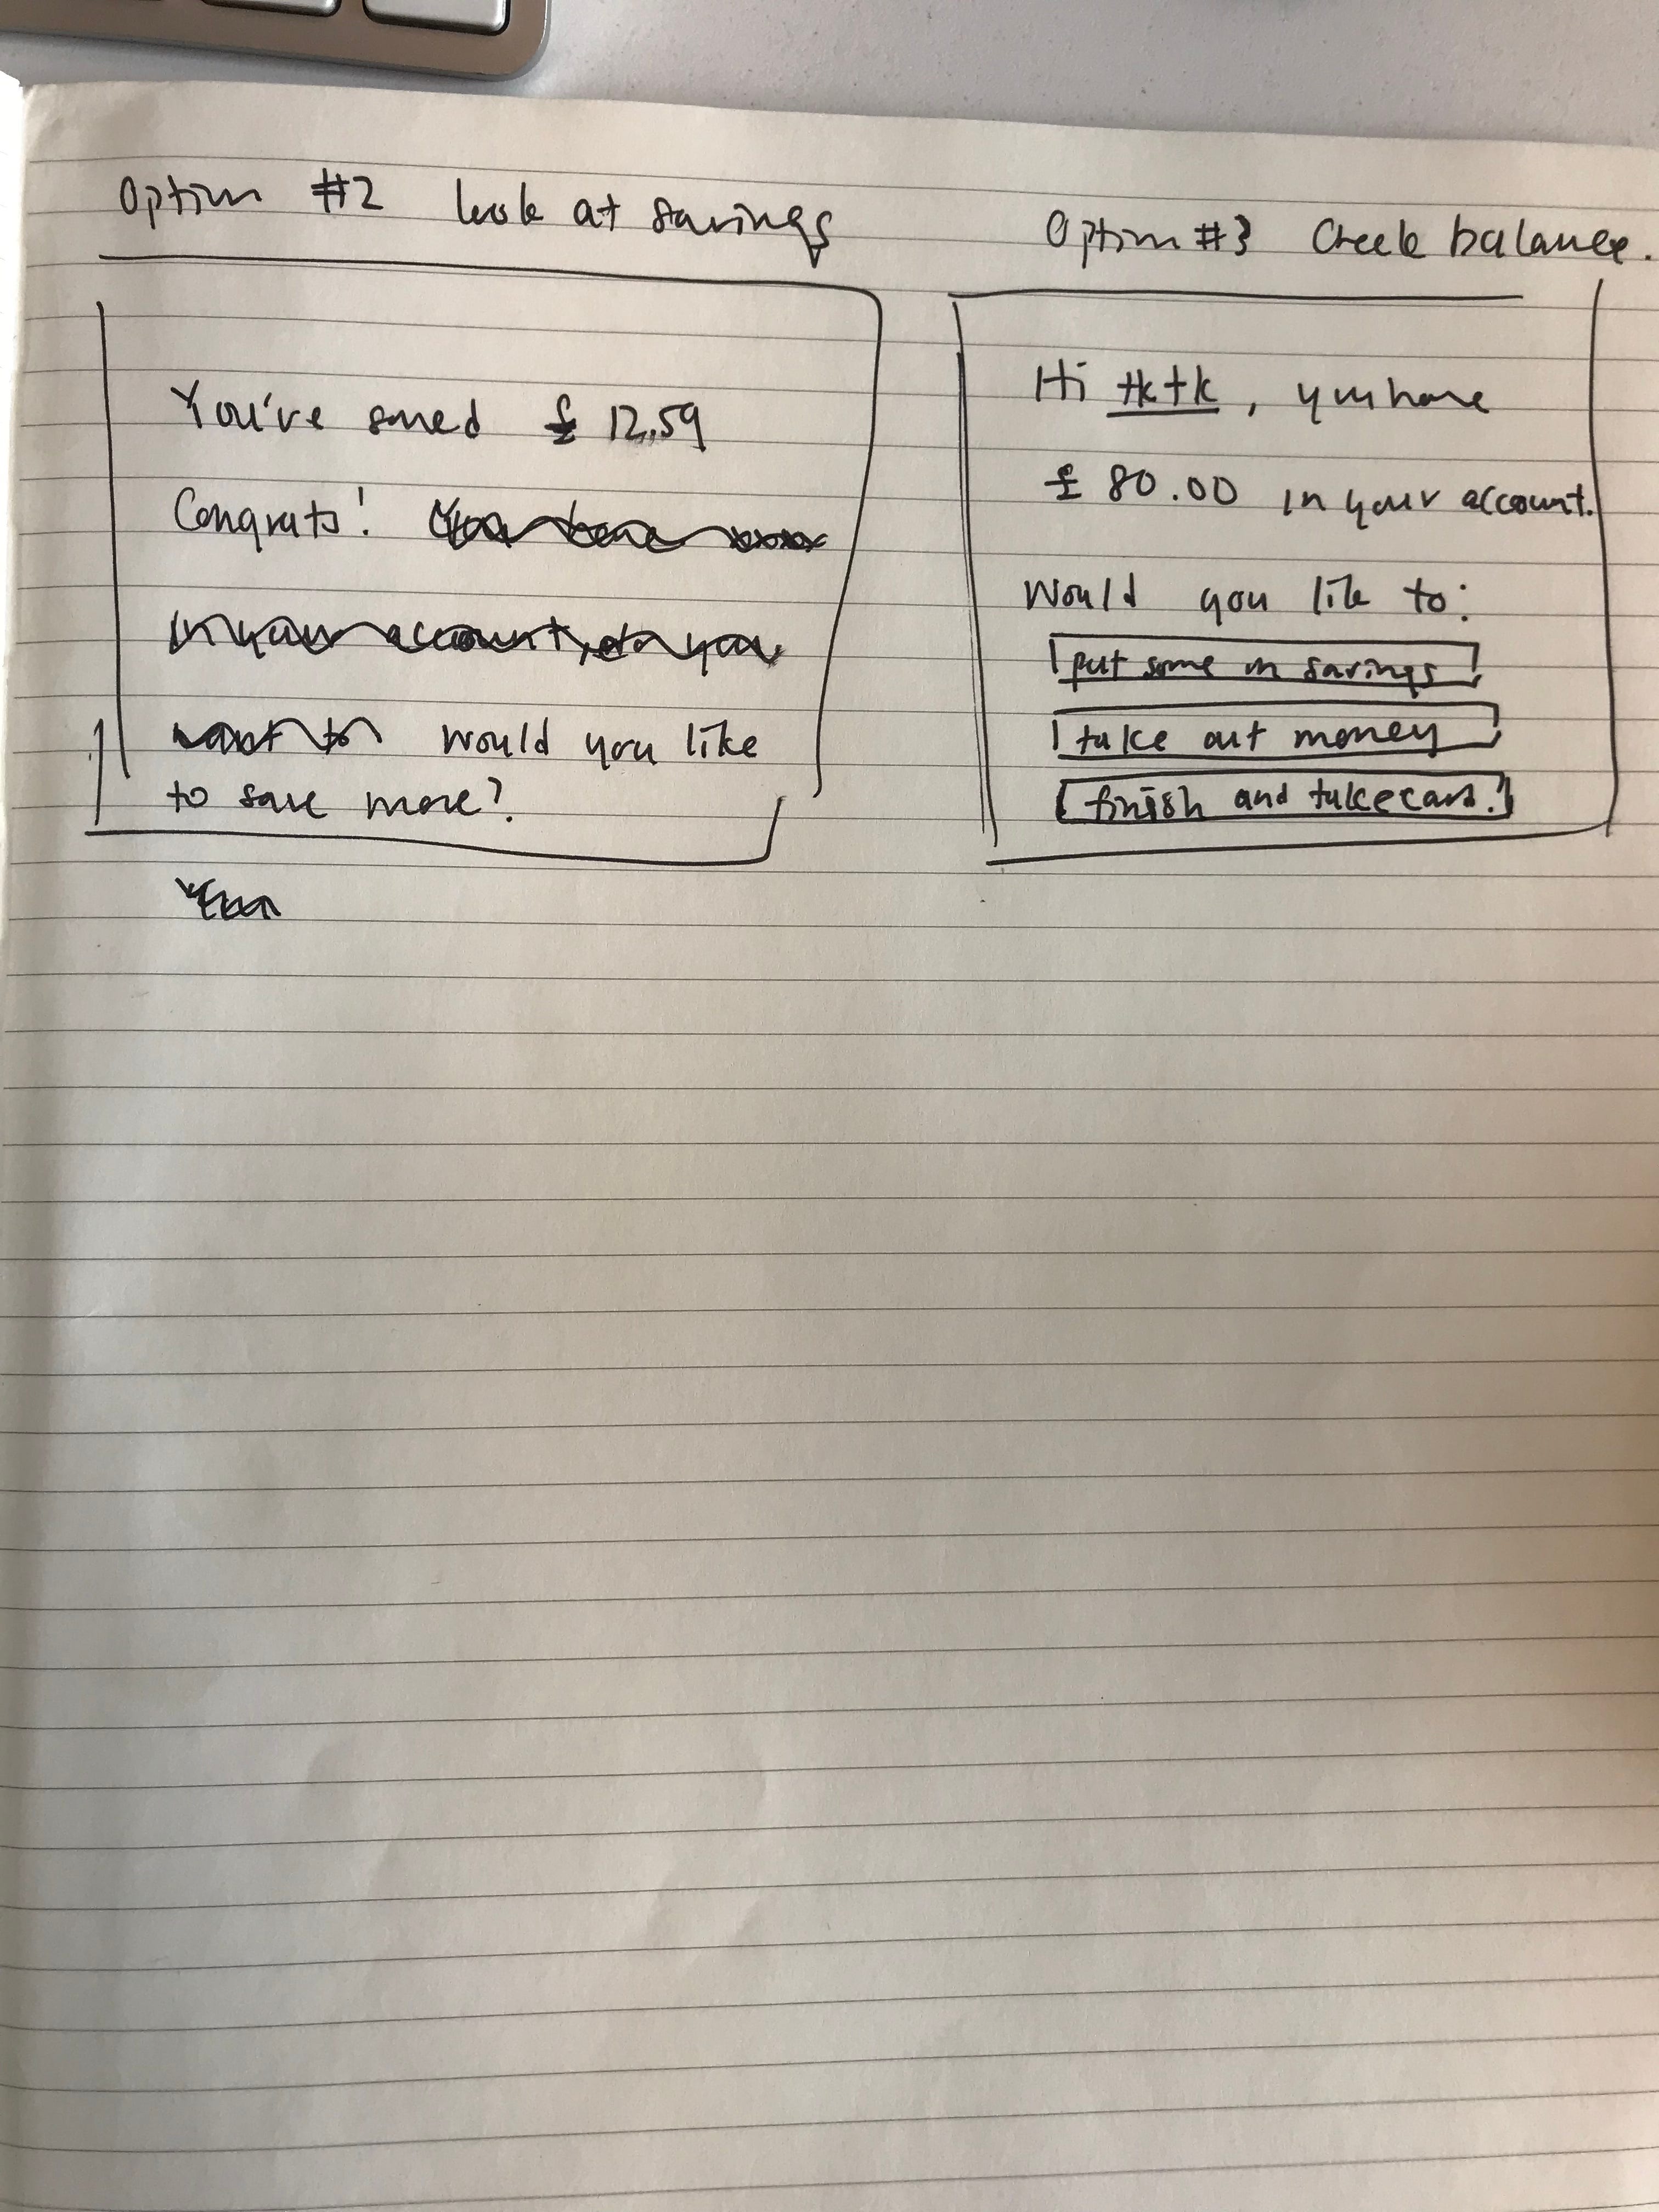 Option #2 look at savings
You've saved £ 12.59
Congrats! You have
in your account, do you
want to would you like
to save more?
Option #3 Check balance.
Hi tktk, you have
£ 80.00 in your account.
Would you like to:
put some in savings
take out money
finish and take card.